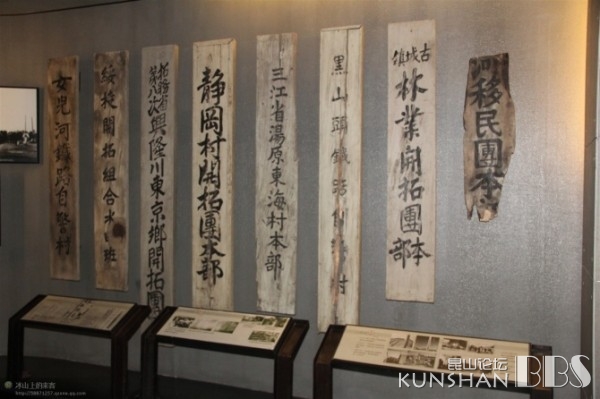 女兒河鐵路自警村
綏稜開拓組合水曲班
第八次興隆川東京鄉開拓團
靜岡村開拓團本部
三江省湯原東海村本部
黑山頭鐵路自警村
古城鎮
林業開拓團本部
移民團本
冰山上的來客
昆山论坛
KUNSHAN BBS